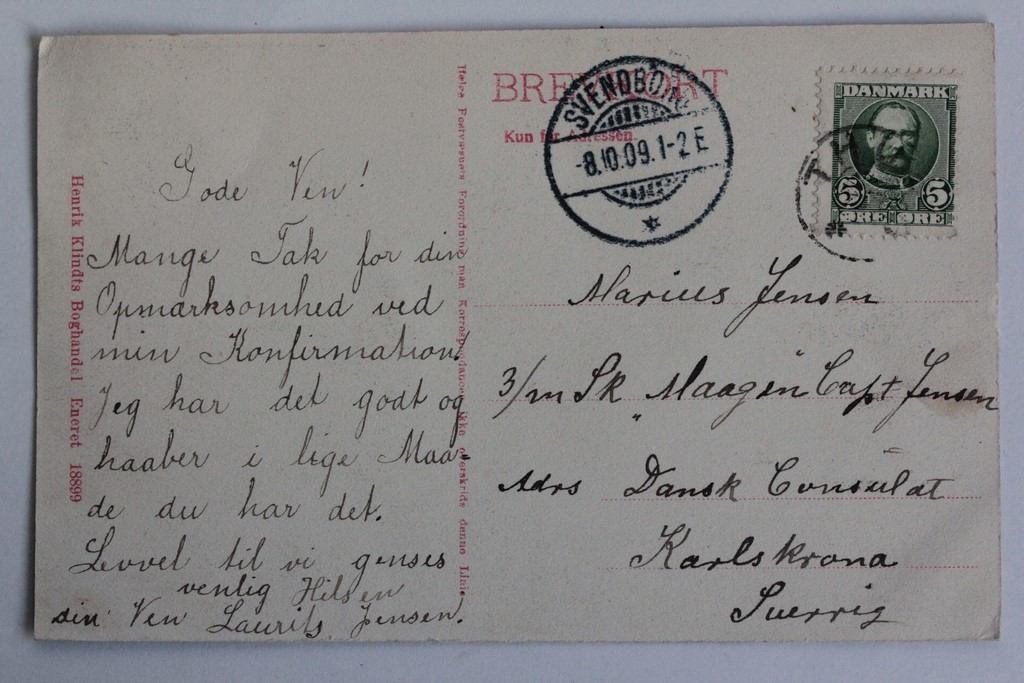 Henrik Klindts Boghandel Eneret 18899
Gode Ven!
Mange Tak for din
Opmærksomhed ved
min Konfirmation!
Jeg har det godt og
haaber i lige Maa-
de du har det.
Levvel til vi genses
venlig Hilsen
din Ven Laurits Jensen.
Ifølge Postvæsnets Forordning maa Korrespondancen ikke overskride denne Linie
BREVKORT
Kun for Adressen
SVENDBORG
-8.10.09.1-2 E
DANMARK
5 5
ØRE ØRE
TH
Marius Jensen
3/m Sk "Maagen" Capt Jensen
Adrs Dansk Consulat
Karlskrona
Suerrig